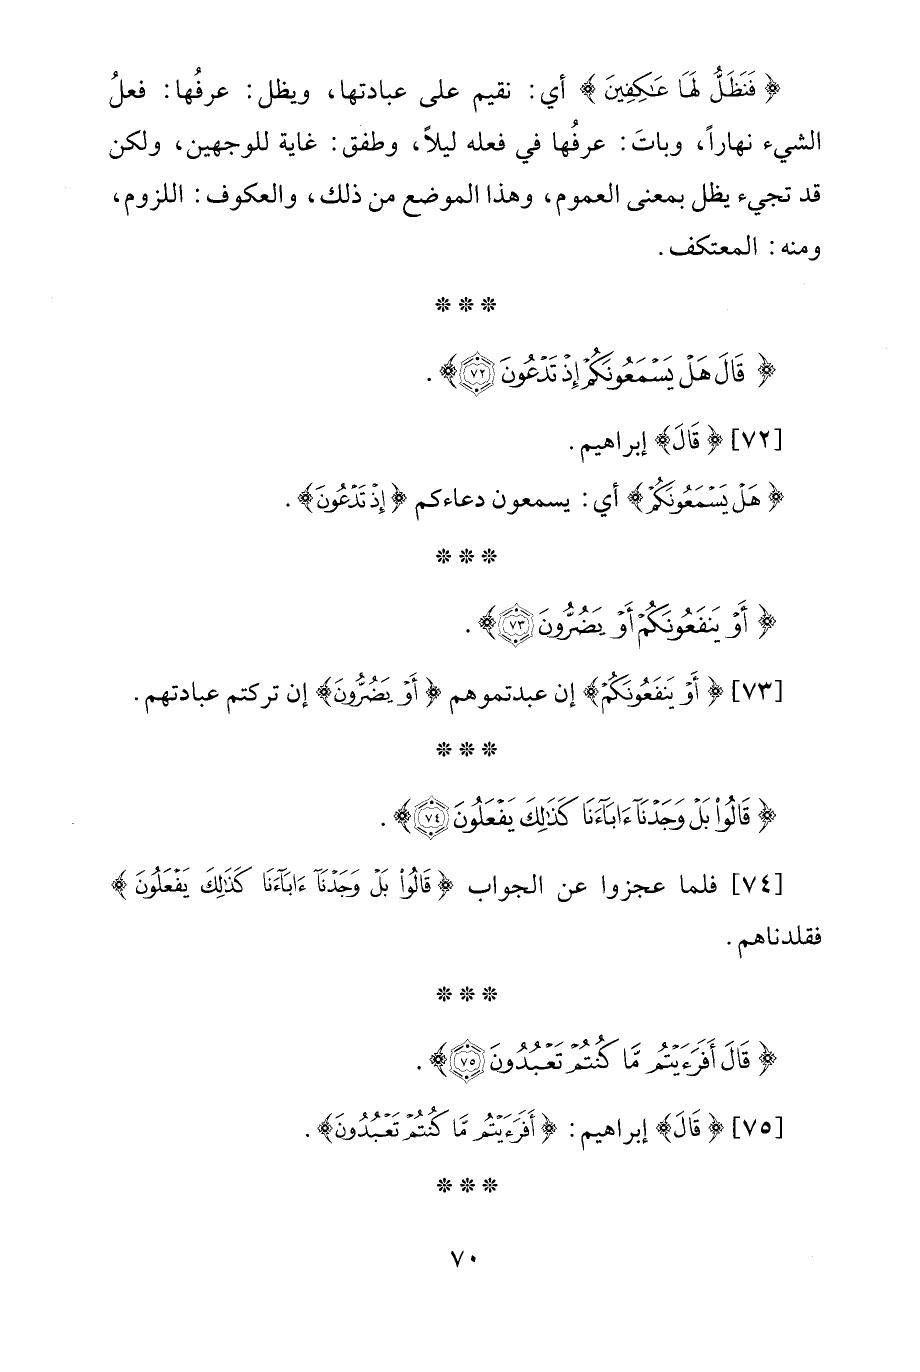 ﴿ فَنَظَلُّ لَهَا عَٰكِفِينَ ﴾ أي: نقيم على عبادتها، ويظل: عرفُها: فعلُ
الشيء نهاراً، وباتَ: عرفُها في فعله ليلاً، وطفق: غاية للوجهين، ولكن
قد تجيء يظل بمعنى العموم، وهذا الموضع من ذلك، والعكوف: اللزوم،
ومنه: المعتكف.
* * *
﴿ قَالَ هَلۡ يَسۡمَعُونَكُمۡ إِذۡ تَدۡعُونَ ٧٢﴾ .
[٧٢] ﴿ قَالَ﴾ إبراهيم.
﴿ هَلۡ يَسۡمَعُونَكُمۡ﴾ أي: يسمعون دعاءكم ﴿ إِذۡ تَدۡعُونَ﴾ .
* * *
﴿ أَوۡ يَنفَعُونَكُمۡ أَوۡ يَضُرُّونَ ٧٣﴾ .
[٧٣] ﴿ أَوۡ يَنفَعُونَكُمۡ﴾ إن عبدتموهم ﴿ أَوۡ يَضُرُّونَ﴾ إن تركتم عبادتهم.
* * *
﴿ قَالُواْ بَلۡ وَجَدۡنَآ ءَابَآءَنَا كَذَٰلِكَ يَفۡعَلُونَ ٧٤﴾ .
[٧٤] فلما عجزوا عن الجواب ﴿ قَالُواْ بَلۡ وَجَدۡنَآ ءَابَآءَنَا كَذَٰلِكَ يَفۡعَلُونَ ﴾
فقلدناهم.
* * *
﴿ قَالَ أَفَرَءَيۡتُم مَّا كُنتُمۡ تَعۡبُدُونَ ٧٥﴾ .
[٧٥] ﴿ قَالَ﴾ إبراهيم: ﴿ أَفَرَءَيۡتُم مَّا كُنتُمۡ تَعۡبُدُونَ﴾ .
* * *
٧٠